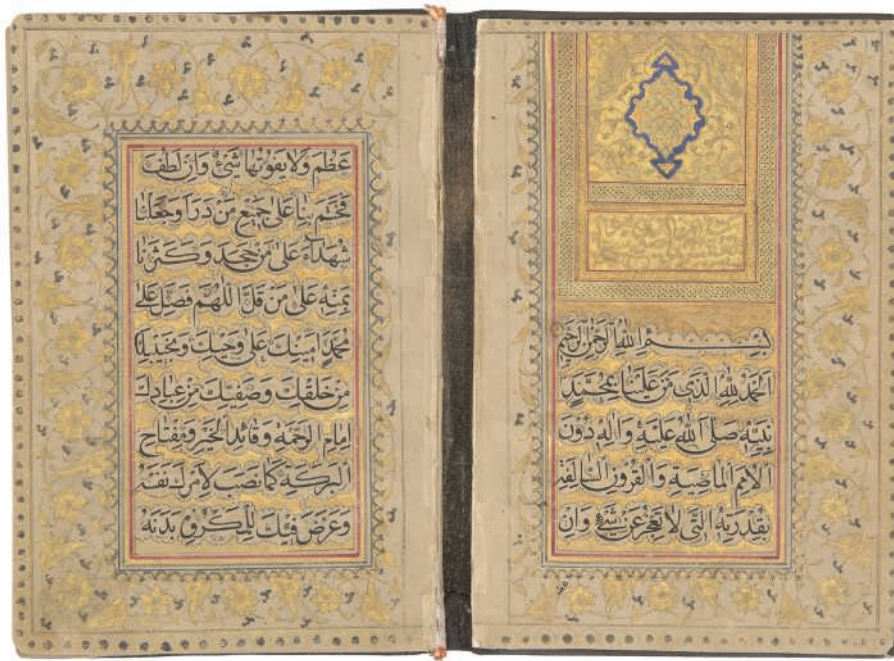 بِسْمِ اللهِ الرَّحْمٰنِ الرَّحِيمِ
اَلْحَمْدُ لِلّٰهِ الَّذِی مَنَّ عَلَیْنَا بِمُحَمَّدٍ
نَبِیِّهِ صَلَّی اللهُ عَلَیْهِ وَاٰلِهِ دُونَ
الْاُمَمِ الْمَاضِیَةِ وَالْقُرُونِ السَّالِفَةِ
بِقُدْرَتِهِ الَّتِی لَا تَعْجِزُ عَنْ شَیْءٍ وَاِنْ
عَظُمَ وَلَا یَفُوتُهَا شَیْءٌ وَاِنْ لَطُفَ
فَخَتَمَ بِنَا عَلٰی جَمِیعِ مَنْ ذَرَاَ وَجَعَلَنَا
شُهَدَاءَ عَلٰی مَنْ جَحَدَ وَکَثَّرَنَا
بِمَنِّهِ عَلٰی مَنْ قَلَّ اَللّٰهُمَّ فَصَلِّ عَلٰی
مُحَمَّدٍ اَمِینِكَ عَلٰی وَحْیِكَ وَنَجِیبِكَ
مِنْ خَلْقِكَ وَصَفِیِّكَ مِنْ عِبَادِكَ
اِمَامِ الرَّحْمَةِ وَقَائِدِ الْخَیْرِ وَمِفْتَاحِ
الْبَرَکَةِ کَمَا نَصَبَ لِاَمْرِكَ نَفْسَهُ
وَعَرَّضَ فِیكَ لِلْمَکْرُوهِ بَدَنَهُ